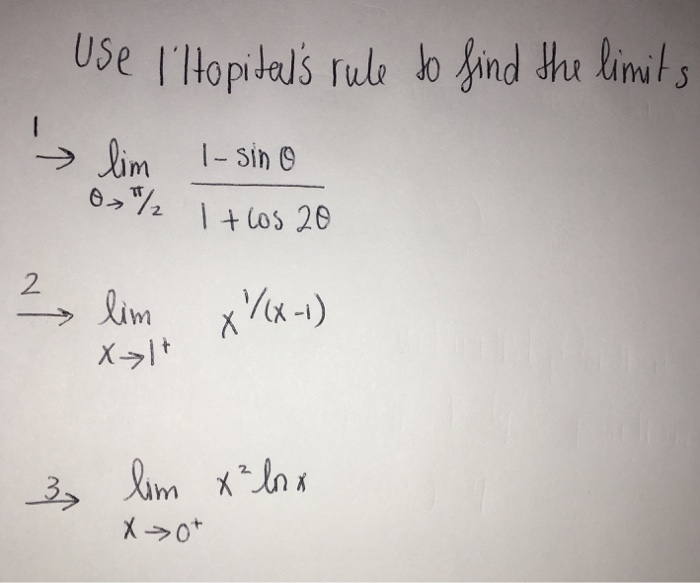 Use l'Hopital's rule to find the limits
1 → lim θ→π/2 1 - sin θ / 1 + cos 2θ
2 → lim x→1⁺ x^1/(x-1)
3 → lim x→0⁺ x² ln x